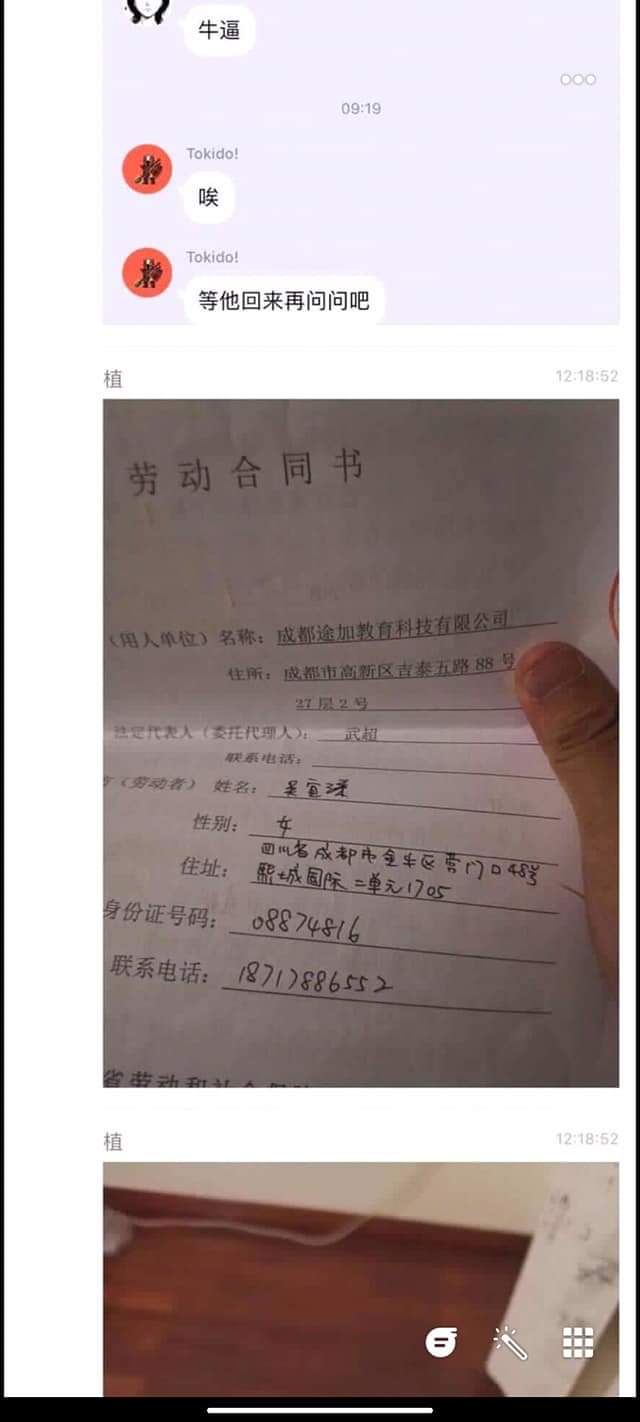 牛逼
09:19
Tokido!
唉
Tokido!
等他回来再问问吧
植
12:18:52
劳动合同书
（用人单位）名称：成都途加教育科技有限公司
住所：成都市高新区吉泰五路 88 号
27 层 2 号
法定代表人（委托代理人）：武超
联系电话：
方（劳动者）姓名：吴宣
性别：女
四川省成都市金牛区营门口48号
住址：熙城国际二单元1705
身份证号码：08874816
联系电话：18717886552
省劳动和社会保
植
12:18:52